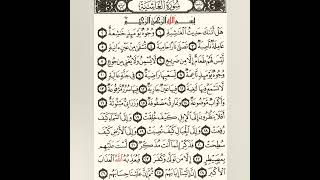 سُورَةُ الْغَاشِيَةِ
بِسْمِ اللَّهِ الرَّحْمَٰنِ الرَّحِيمِ
هَلْ أَتَاكَ حَدِيثُ الْغَاشِيَةِ ۝ وُجُوهٌ يَوْمَئِذٍ خَاشِعَةٌ ۝
عَامِلَةٌ نَّاصِبَةٌ ۝ تَصْلَىٰ نَارًا حَامِيَةً ۝ تُسْقَىٰ مِنْ عَيْنٍ آنِيَةٍ ۝
لَّيْسَ لَهُمْ طَعَامٌ إِلَّا مِن ضَرِيعٍ ۝ لَّا يُسْمِنُ وَلَا يُغْنِي مِن جُوعٍ ۝
وُجُوهٌ يَوْمَئِذٍ نَّاعِمَةٌ ۝ لِّسَعْيِهَا رَاضِيَةٌ ۝ فِي جَنَّةٍ عَالِيَةٍ ۝
لَّا تَسْمَعُ فِيهَا لَاغِيَةً ۝ فِيهَا عَيْنٌ جَارِيَةٌ ۝ فِيهَا سُرُرٌ مَّرْفُوعَةٌ ۝
وَأَكْوَابٌ مَّوْضُوعَةٌ ۝ وَنَمَارِقُ مَصْفُوفَةٌ ۝ وَزَرَابِيُّ مَبْثُوثَةٌ ۝
أَفَلَا يَنظُرُونَ إِلَى الْإِبِلِ كَيْفَ خُلِقَتْ ۝ وَإِلَى السَّمَاءِ كَيْفَ
رُفِعَتْ ۝ وَإِلَى الْجِبَالِ كَيْفَ نُصِبَتْ ۝ وَإِلَى الْأَرْضِ كَيْفَ
سُطِحَتْ ۝ فَذَكِّرْ إِنَّمَا أَنتَ مُذَكِّرٌ ۝ لَّسْتَ عَلَيْهِم
بِمُصَيْطِرٍ ۝ إِلَّا مَن تَوَلَّىٰ وَكَفَرَ ۝ فَيُعَذِّبُهُ اللَّهُ الْعَذَابَ
الْأَكْبَرَ ۝ إِنَّ إِلَيْنَا إِيَابَهُمْ ۝ ثُمَّ إِنَّ عَلَيْنَا حِسَابَهُم ۝